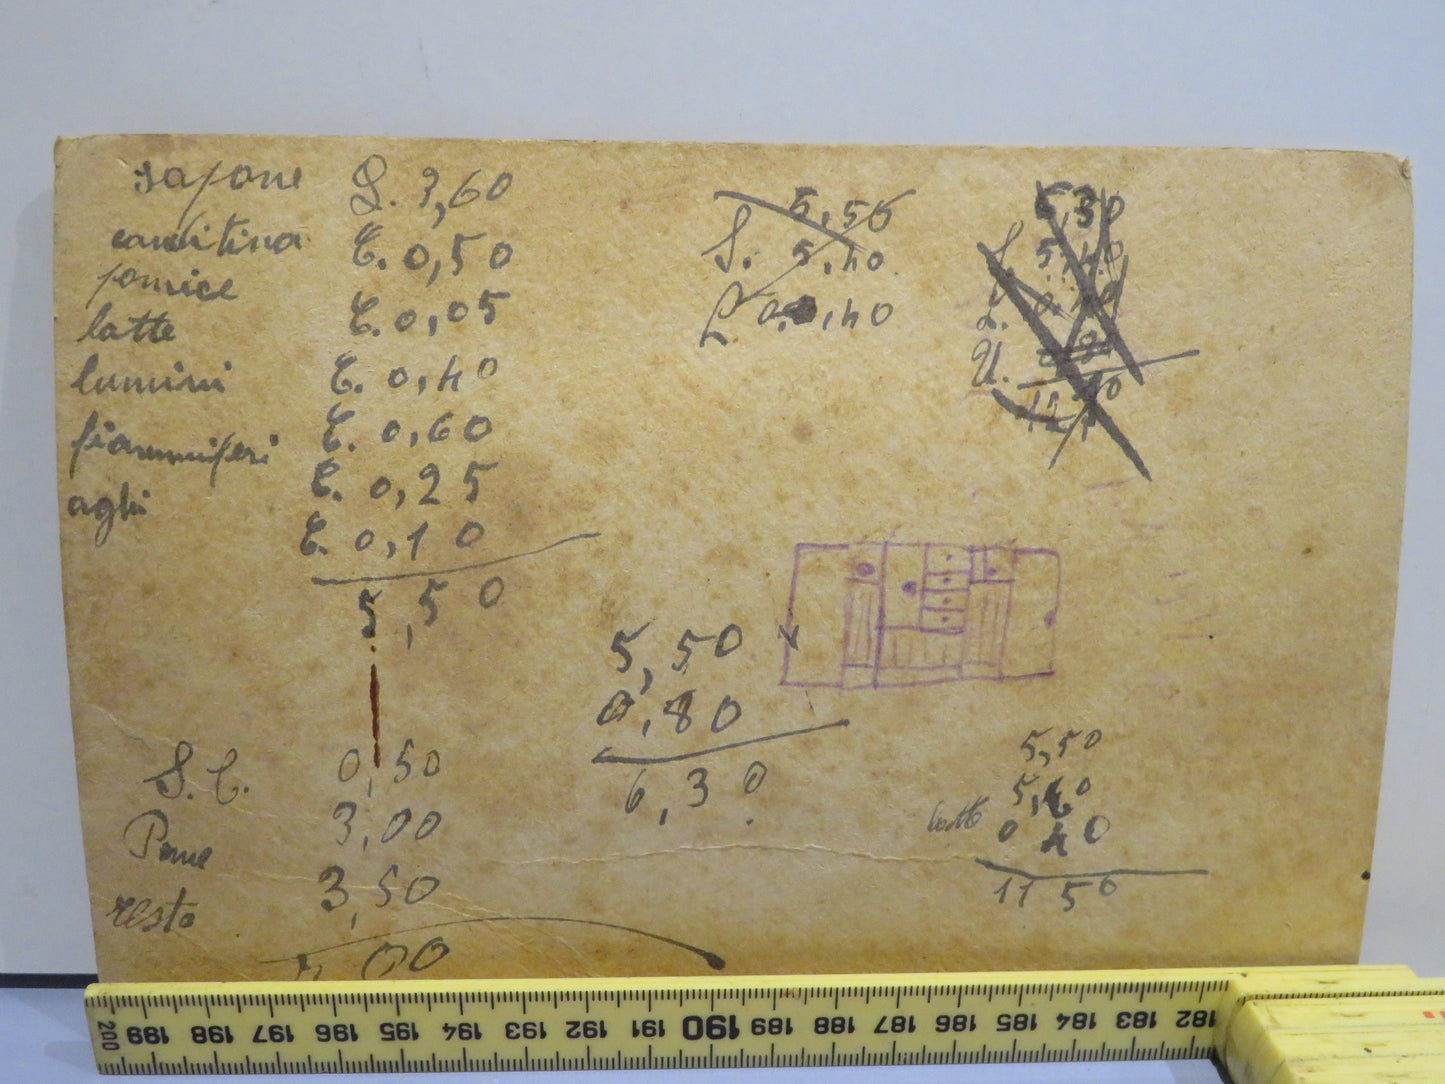 sapone L. 3,60
canditina C. 0,50
pomice C. 0,05
latte C. 0,40
lumini C. 0,60
fiammiferi C. 0,25
aghi C. 0,10
5,50
5,50
S. 5,40
L 0,40
6,30
S. 5,40
L. 0,40
U.
5,50
0,80
6,30
S. C. 0,50
Pane 3,00
resto 3,50
00
5,50
5,60
latte 0 40
11 50
200 199 198 197 196 195 194 193 192 191 190 189 188 187 186 185 184 183 182